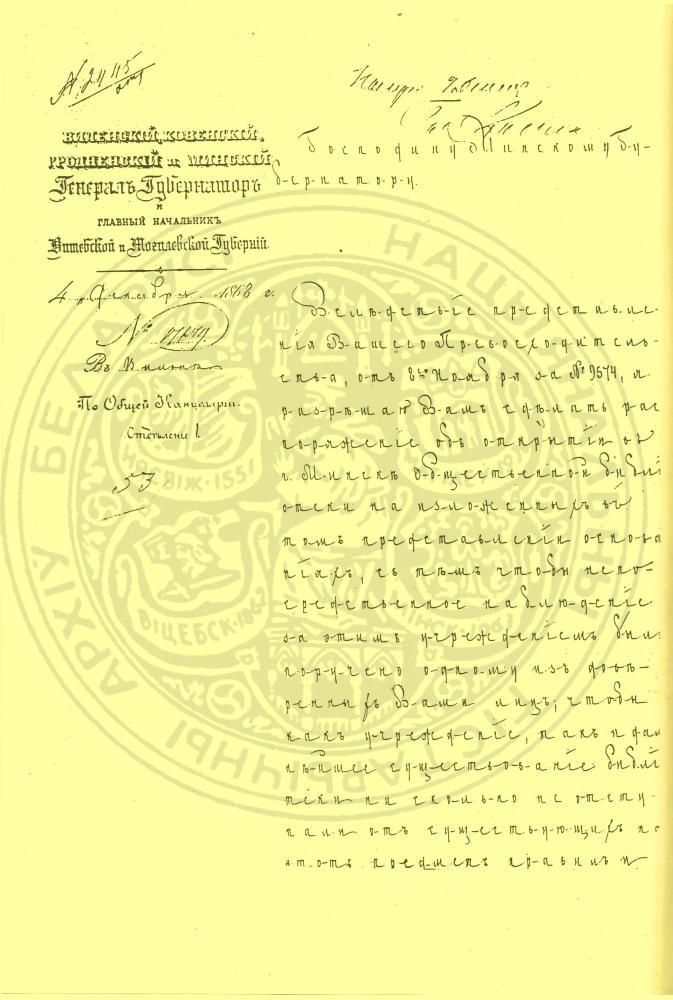 № 2445
ВИЛЕНСКІЙ, КОВЕНСКІЙ,
ГРОДНЕНСКІЙ и МИНСКІЙ
Генералъ Губернаторъ
и
ГЛАВНЫЙ НАЧАЛЬНИКЪ
Витебской и Могилевской Губерній.
4 Декабря 1868 г.
№
Въ Вильнѣ
По Общей Канцеляріи.
Отдѣленіе 1.
53
Господину Минскому Гу-
бернатору.
Вслѣдствіе представле-
нія Вашего Превосходитель-
ства, отъ 8го Ноября за № 9574, я
разрѣшаю Вамъ сдѣлать рас
поряженіе объ открытіи въ
г. Минскѣ Общественной библі
отеки на изложенныхъ въ
томъ представленіи основа
ніяхъ, съ тѣмъ чтобы непо-
средственное наблюденіе
за этимъ учрежденіемъ было
поручено одному изъ довѣ-
ренныхъ Вами лицъ, чтобы
какъ учрежденіе, такъ и даль
нѣйшее существованіе библіо
теки ни сколько не отсту-
пали отъ существующихъ на
этотъ предметъ правилъ и
НАЦЫЯНАЛЬНЫ ГІСТАРЫЧНЫ АРХІЎ БЕЛАРУСІ
ВІЦЕБСК